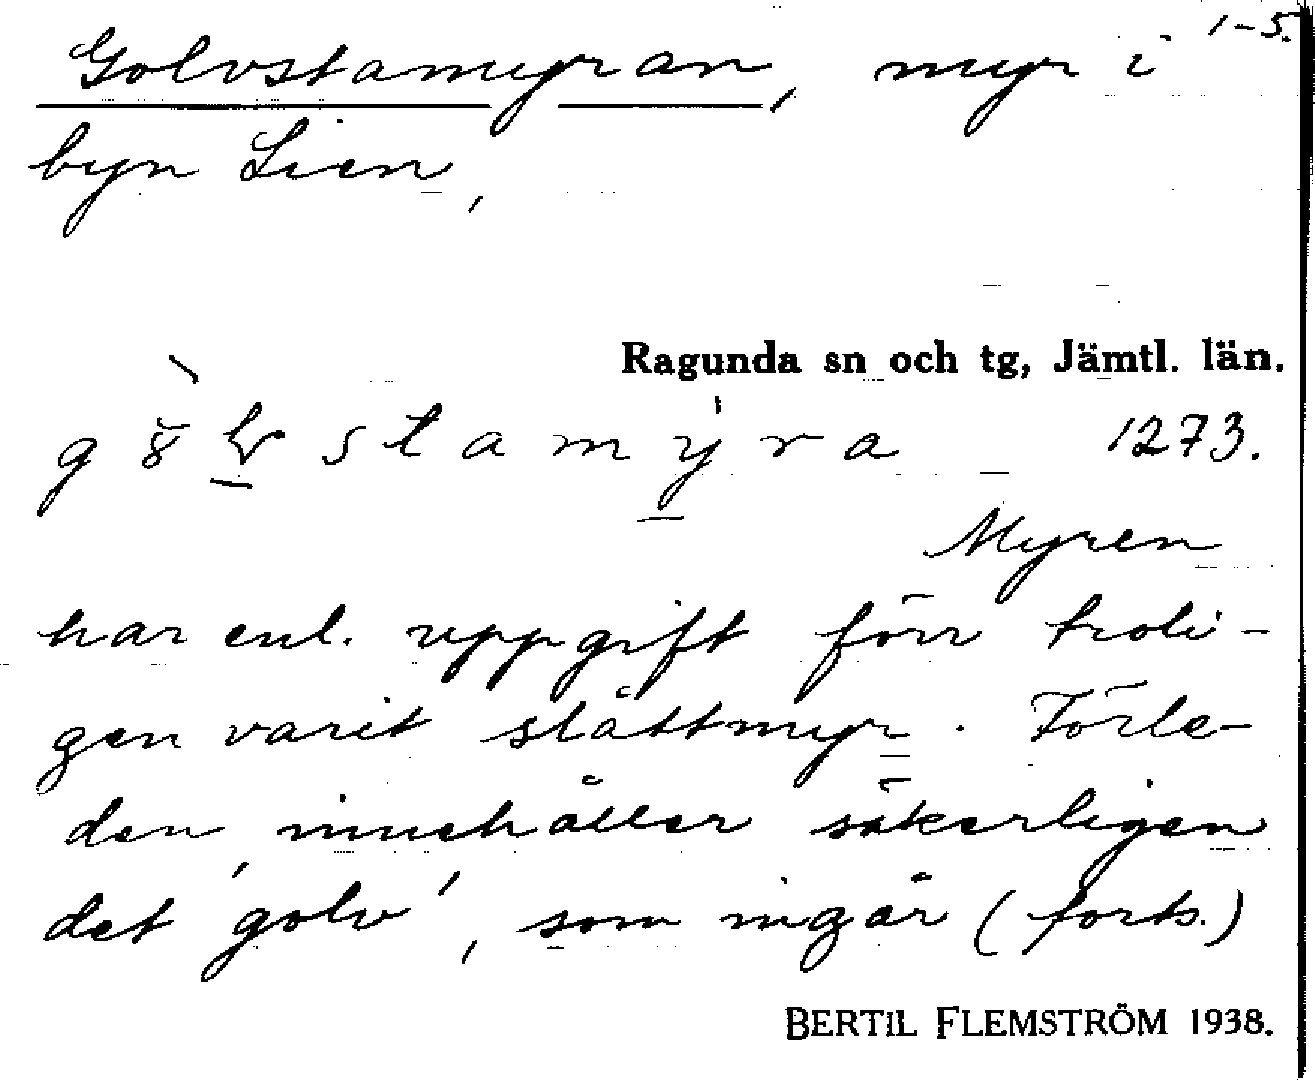 1-5.
Golvstamyran, myr i
byn Lien,
Ragunda sn och tg, Jämtl. län.
stamýra 1273.
Myren
har enl. uppgift förr troli-
gen varit slåttmyr. Förle-
den innehåller säkerligen
det 'golv', som ingår (forts.)
BERTIL FLEMSTRÖM 1938.